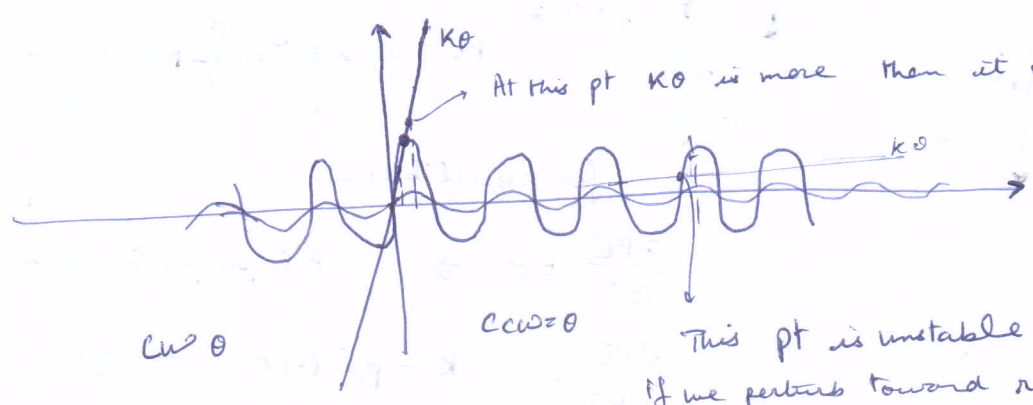 Kθ
At this pt Kθ is more than it
Kθ
CW θ
CCW=θ
This pt is unstable
If we perturb toward